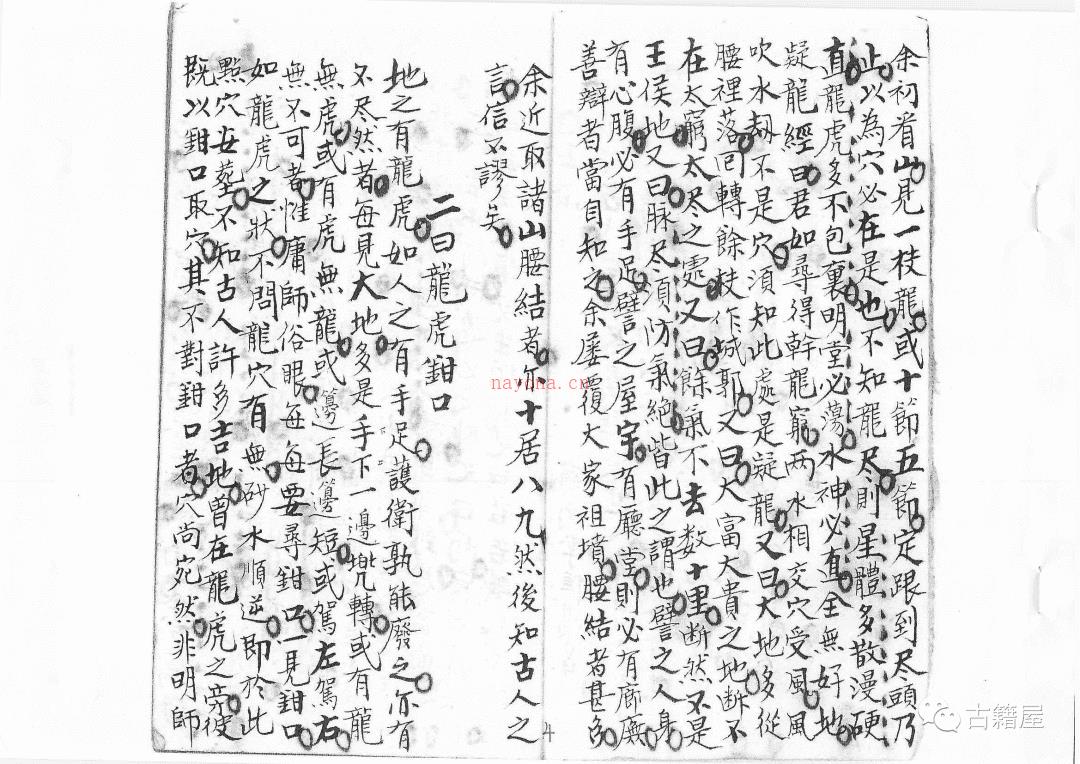 余初看山見一枝龍或十節五節定跟到尽頭乃
止以為穴必在是也不知龍尽則星體多散漫硬
直龍虎多不包裹明堂必蕩水神必直全無好地
疑龍經曰君如尋得幹龍窮两水相交穴受風風
吹水刼不是穴須知此處是疑龍又曰大地多從
腰裡落回轉餘枝作城郭又曰大富大貴之地断不
在太窮太尽之處又曰餘氣不去数十里断然不是
王侯地又曰脉尽須防氣絶皆此之謂也譬之人身
有心腹必有手足譬之屋宇有廳堂則必有廊廡
善辯者當自知之余屡覆大家祖墳腰結者甚多
余近取諸山腰結者亦十居八九然後知古人之
言信不謬矣
二曰龍虎鉗口
地之有龍虎如人之有手足護衛孰能廢之亦有
不尽然者每見大地多是手下一邊兠轉或有龍
無虎或有虎無龍或邊長邊短或駕左駕右
無不可者惟庸師俗眼每每要尋鉗口一見鉗口
如龍虎之狀不問龍穴有無砂水順逆即於此
點穴安塟不知古人許多吉地曾在龍虎之旁彼
既以鉗口取穴其不對鉗口者穴尚宛然非明師
4
nayona.cn
古籍屋